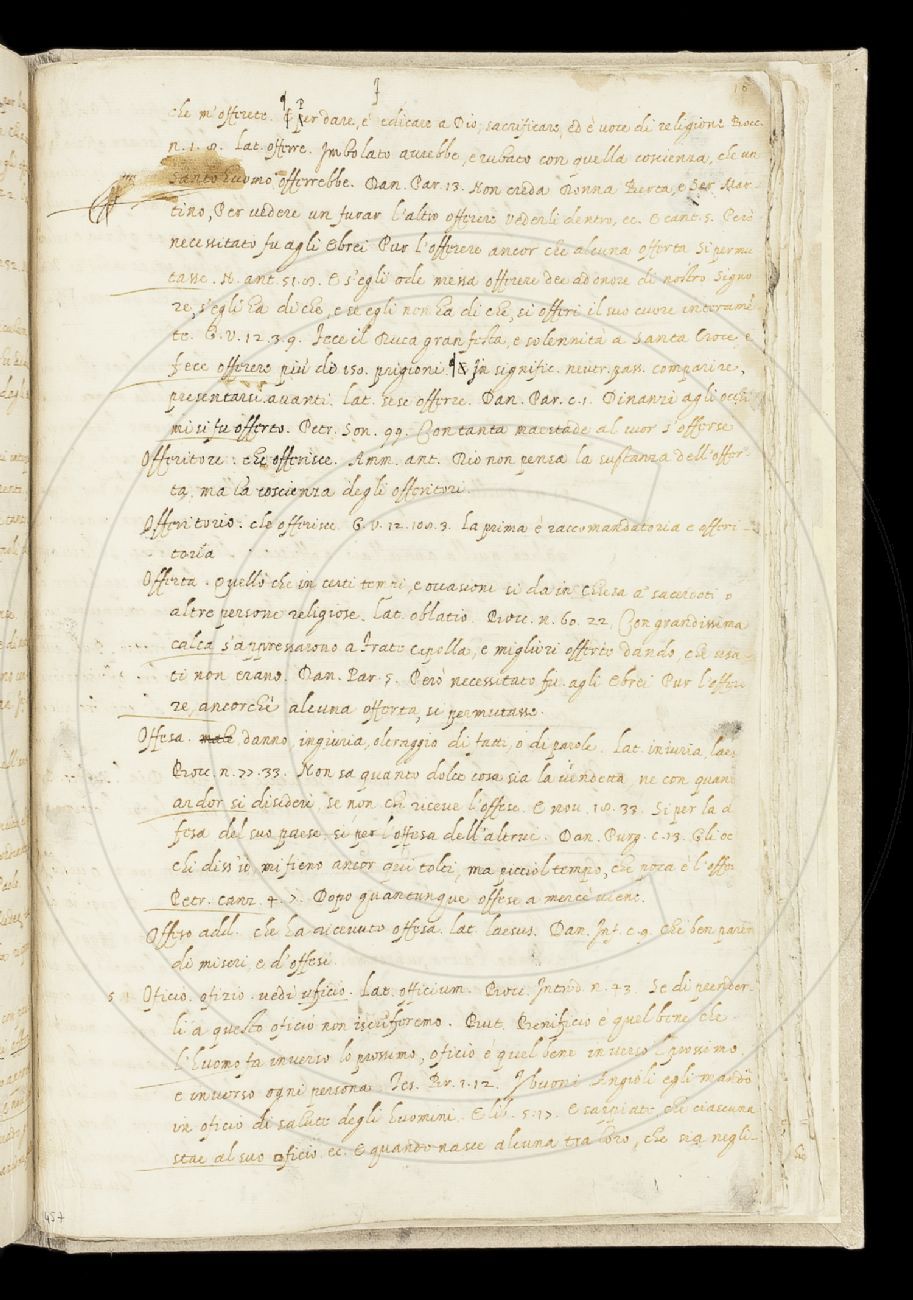 che m'offirete. ¶ Per dare, e dedicare a Dio, sacrificare, ed è voce di religione Bocc.
n. 1. 8. Lat. offerre. Imbolato avrebbe, e rubato con quella coscienza, che un
santo huomo offerrebbe. Dan. Par. 13. Non creda Donna Berta, e Ser Mar-
tino, Per vedere un furar l'altro offerere vederli dentro, ec. E cant. 5. Però
necessitato fu agli Ebrei Pur l'offerere ancor che alcuna offerta si permu
tasse. N. ant. 51. 8. E s'egli ode messa offerere dee ad onore di nostro Signo
re, s'egli ha di che, e se egli non ha di che, si offeri il suo cuore interamē
te. G. V. 12. 3. 9. Fece il Duca gran festa, e solennità a Santa Croce e
fece offerere più di 150. prigioni. ¶ In signific. neutr. pass. comparire,
presentarsi avanti. lat. sese offerre. Dan. Par. c. 1. Dinanzi agli occhi
mi si fu offerto. Petr. Son. 99. Con tanta maestade al cuor s'offerse
Offeritore: che offerisce. Amm. ant. Dio non pensa la sustanza dell'offer-
ta, ma la coscienza degli offeritori.
Offeritorio. che offerisce. G. V. 12. 108. 3. La prima è raccomandatoria e offeri-
toria
Offerta. Quello che in certi tempi, e occasioni si da in chiesa a' sacerdoti o
altre persone religiose. lat. oblatio. Bocc. n. 60. 22. Con grandissima
calca s'appressavono a frate Cipolla, e migliori offerte dando, che usa-
ti non erano. Dan. Par. 5. Però necessitato fu agli Ebrei Pur l'offere
re, ancorchè alcuna offerta, si permutasse.
Offesa. danno, ingiuria, oltraggio di fatti, o di parole. Lat. iniuria, laes
Bocc. n. 77. 33. Non sa quanto dolce cosa sia la vendetta, ne con quan
ardor si disideri, se non chi riceve l'offese. E nov. 18. 33. Si per la d
fesa del suo paese si per l'offesa dell'altrui. Dan. Purg. c. 13. Gli oc
chi diss'io, mi fieno ancor qui tolti, ma picciol tempo, che poca è l'offe
Petr. canz. 4. 7. Dopo quantunque offese a mercè viene.
Offeso add. che ha ricevuto offesa. lat. laesus. Dan. Inf. c. 9. Che ben parēn
di miseri, e d'offesi
5 Oficio. ofizio. vedi uficio. Lat. officium. Bocc. Introd. n. 43. Se di prender-
li a questo oficio non ischiferemo. But. Benificio è quel bene che
l'huomo fa inverso lo prossimo, oficio è quel bene inverso l prossimo
e inverso ogni persona. Tes. Br. 1. 12. I buoni Angioli egli mandò
in oficio di salute degli huomini. E lib. 5. 17. E sappiate, che ciascuna
stae al suo oficio ec. E quando nasce alcuna tra loro, che sia negli-
457